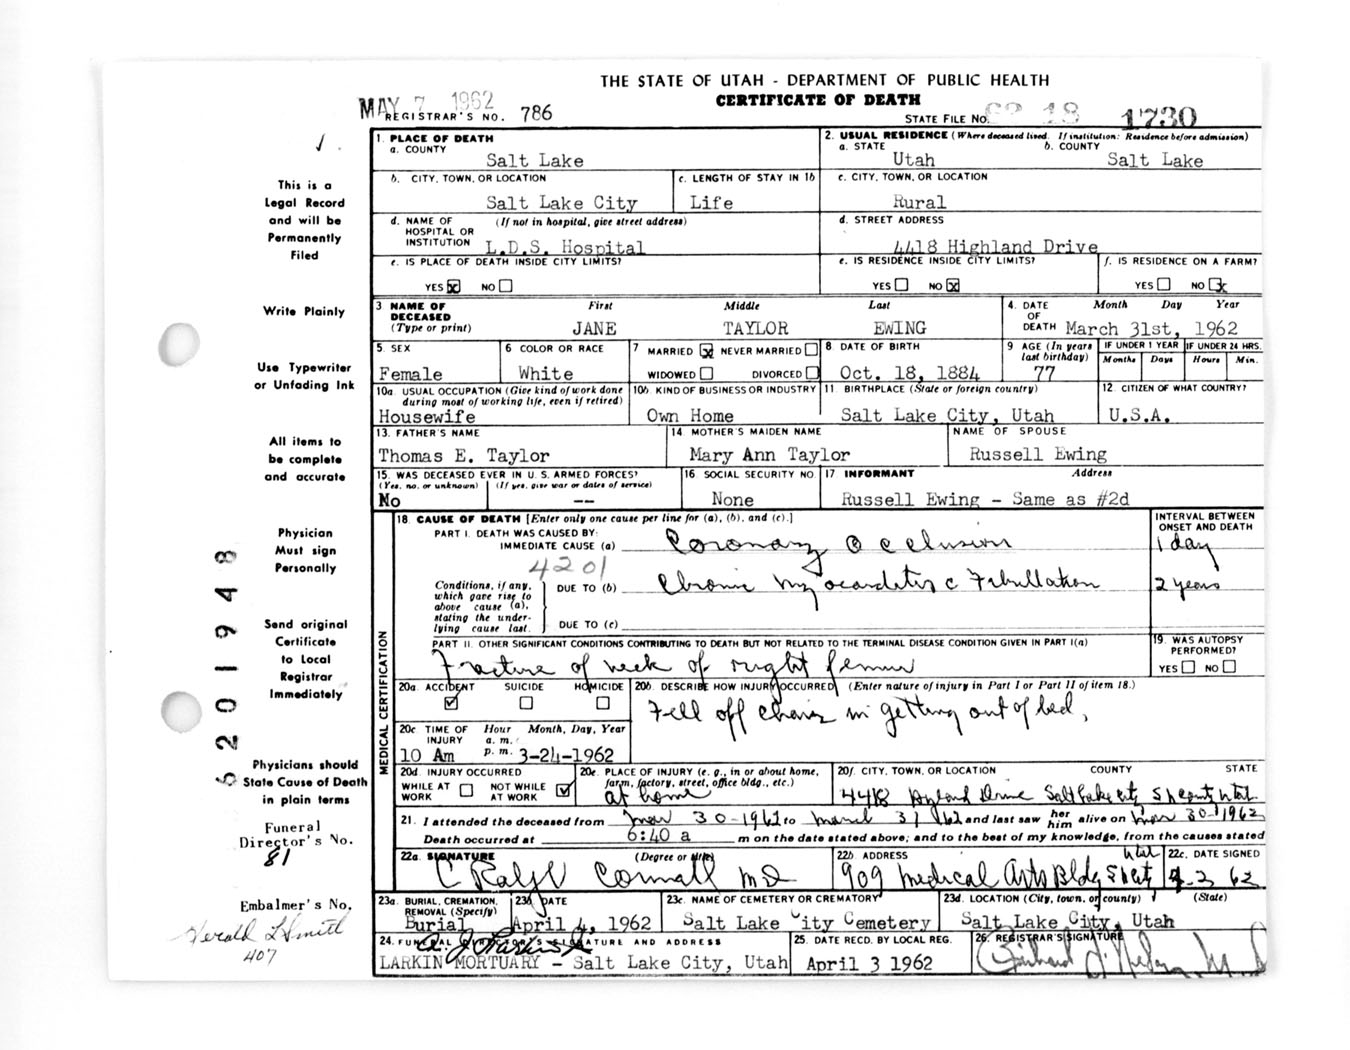 THE STATE OF UTAH - DEPARTMENT OF PUBLIC HEALTH
CERTIFICATE OF DEATH
MAY 7 1962
REGISTRAR'S NO. 786
STATE FILE NO. 62 18 1730
1. PLACE OF DEATH
a. COUNTY
Salt Lake
2. USUAL RESIDENCE (Where deceased lived. If institution: Residence before admission)
a. STATE b. COUNTY
Utah Salt Lake
b. CITY, TOWN, OR LOCATION
Salt Lake City
c. LENGTH OF STAY IN 1b
Life
c. CITY, TOWN, OR LOCATION
Rural
d. NAME OF HOSPITAL OR INSTITUTION (If not in hospital, give street address)
L.D.S. Hospital
d. STREET ADDRESS
4418 Highland Drive
e. IS PLACE OF DEATH INSIDE CITY LIMITS?
YES x NO
e. IS RESIDENCE INSIDE CITY LIMITS?
YES NO x
f. IS RESIDENCE ON A FARM?
YES NO x
3. NAME OF DECEASED (Type or print)
First Middle Last
JANE TAYLOR EWING
4. DATE OF DEATH Month Day Year
March 31st, 1962
5. SEX
Female
6 COLOR OR RACE
White
7 MARRIED x NEVER MARRIED
WIDOWED DIVORCED
8 DATE OF BIRTH
Oct. 18, 1884
9 AGE (In years last birthday)
77
IF UNDER 1 YEAR
Months Days
IF UNDER 24 HRS.
Hours Min.
10a. USUAL OCCUPATION (Give kind of work done during most of working life, even if retired)
Housewife
10b. KIND OF BUSINESS OR INDUSTRY
Own Home
11. BIRTHPLACE (State or foreign country)
Salt Lake City, Utah
12. CITIZEN OF WHAT COUNTRY?
U.S.A.
13. FATHER'S NAME
Thomas E. Taylor
14 MOTHER'S MAIDEN NAME
Mary Ann Taylor
NAME OF SPOUSE
Russell Ewing
15. WAS DECEASED EVER IN U. S. ARMED FORCES?
(Yes, no, or unknown) (If yes, give war or dates of service)
No --
16 SOCIAL SECURITY NO.
None
17 INFORMANT Address
Russell Ewing - Same as #2d
MEDICAL CERTIFICATION
18. CAUSE OF DEATH [Enter only one cause per line for (a), (b), and (c).]
INTERVAL BETWEEN ONSET AND DEATH
PART I. DEATH WAS CAUSED BY:
IMMEDIATE CAUSE (a) Coronary Occlusion
1 day
4201
Conditions, if any, which gave rise to above cause (a), stating the underlying cause last.
DUE TO (b) Chronic Myocarditis c Fibrillation
2 years
DUE TO (c)
PART II. OTHER SIGNIFICANT CONDITIONS CONTRIBUTING TO DEATH BUT NOT RELATED TO THE TERMINAL DISEASE CONDITION GIVEN IN PART I(a)
Fracture of neck of right femur
19. WAS AUTOPSY PERFORMED?
YES NO
20a. ACCIDENT SUICIDE HOMICIDE
20b. DESCRIBE HOW INJURY OCCURRED (Enter nature of injury in Part I or Part II of item 18.)
Fell off chair in getting out of bed,
20c. TIME OF INJURY Hour Month, Day, Year
a. m.
p. m.
10 Am 3-24-1962
20d. INJURY OCCURRED
WHILE AT WORK NOT WHILE AT WORK
20e. PLACE OF INJURY (e. g., in or about home, farm, factory, street, office bldg., etc.)
at home
20f. CITY, TOWN, OR LOCATION COUNTY STATE
4418 Drive Salt Lake City Utah
21. I attended the deceased from Mar 30-1962 to March 31 1962 and last saw her him alive on Mar 30-1962
Death occurred at 6:40 a m on the date stated above; and to the best of my knowledge, from the causes stated
22a. SIGNATURE (Degree or title)
C Ralph Cornall MD
22b. ADDRESS
909 Medical Arts Bldg S L City Utah
22c. DATE SIGNED
4-2 62
23a. BURIAL, CREMATION, REMOVAL (Specify)
Burial
23b. DATE
April 4, 1962
23c. NAME OF CEMETERY OR CREMATORY
Salt Lake City Cemetery
23d. LOCATION (City, town, or county) (State)
Salt Lake City, Utah
24. FUNERAL DIRECTOR'S SIGNATURE AND ADDRESS
LARKIN MORTUARY - Salt Lake City, Utah
25. DATE RECD. BY LOCAL REG.
April 3 1962
26. REGISTRAR'S SIGNATURE
This is a
Legal Record
and will be
Permanently
Filed
Write Plainly
Use Typewriter
or Unfading Ink
All items to
be complete
and accurate
Physician
Must sign
Personally
Send original
Certificate
to Local
Registrar
Immediately
Physicians should
State Cause of Death
in plain terms
Funeral
Director's No.
81
Embalmer's No.
Herald L Smith
407
5201948